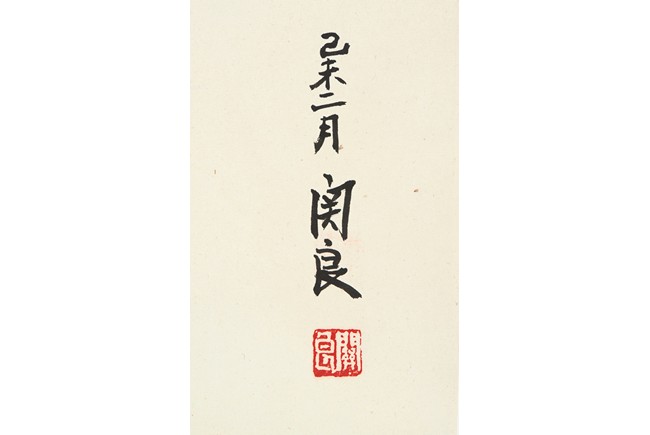 己未二月 関良
關良